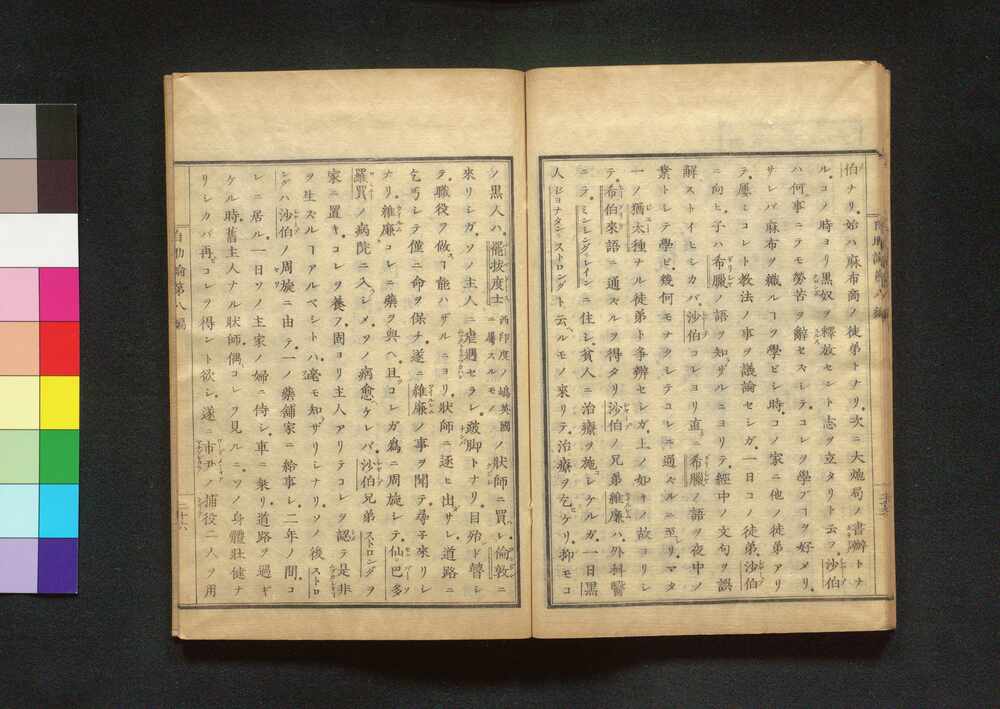 伯ナリ。始ハ麻布商ノ徒弟トナリ。次ニ大炮局ノ書辦トナ
ル。コノ時ヨリ黒奴ヲ釋放セント志ヲ立タリト云フ。沙伯
ハ何事ニテモ勞苦ヲ辭セズシテ。コレヲ學ブヿヲ好メリ。
サレバ麻布ヲ織ルヿヲ學ビシ時。コノ家ニ他ノ徒弟アリ
テ。屢シコレト教法ノ事ヲ議論セシガ。一日コノ徒弟。沙伯
ニ向ヒ。子ハ希臘ノ語ヲ知ザルニヨリテ。經中ノ文句ヲ誤
解ストイヒシカバ。沙伯コレヨリ直ニ希臘ノ語ヲ夜中ノ
業トシテ學ビ。幾何モナクシテコレニ通ズルニ至リ。マタ
一ノ猶太種ナル徒弟ト爭辨セシガ。上ノ如キノ故ヨリシ
テ。希伯來語ニ通ズルヲ得タリ。沙伯ノ兄弟維廉ハ。外科醫
ニテ。ミンシングレインニ住シ。貧人ニ治療ヲ施シケルガ。一日黒
人ジョナタン。ストロングト云ヘルモノ來リテ。治療ヲ乞ケリ。抑モコ
ノ黒人ハ。罷拔度士西印度ノ嶋英國ニ屬スルモノノ狀師ニ買ハレ。倫敦ニ
來リシガ。ソノ主人ニ虐遇セラレ。跛脚トナリ。目殆ド瞽シ
テ。職役ヲ做スヿ能ハザルニヨリ。狀師ニ逐ヒ出サレ。道路ニ
乞丐シテ僅ニ命ヲ保チ。遂ニ維廉ノ事ヲ聞テ。尋子來リシ
ナリ。維廉コレニ藥ヲ與ヘ。且コレガ爲ニ周旋シテ。仙巴多
羅買ノ病院ニ入シメ。ソノ病愈ケレバ。沙伯兄弟ストロングヲ
家ニ置キ。コレヲ養フ。固ヨリ主人アリテコレヲ認テ是非
ヲ生ズルヿアルベシトハ。毫モ知ザリシナリ。ソノ後ストロ
ングハ沙伯ノ周旋ニ由テ。一ノ藥鋪家ニ給事シ。二年ノ間。コ
レニ居ル。一日ソノ主家ノ婦ニ侍シ。車ニ乘リ。道路ヲ過ギ
ケル時。舊主人ナル狀師。偶コレヲ見ルニ。ソノ身體壯健ナ
リシカバ。再ビコレヲ得ント欲シ。遂ニ市尹ノ捕役二人ヲ用
自助論第八編
二十六